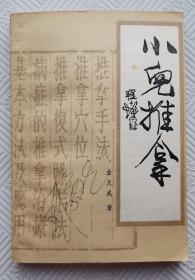 小兒推拿
金义成 著
推拿手法
推拿穴位
推拿復式操作法
病症的推拿治療
基本方法及應用